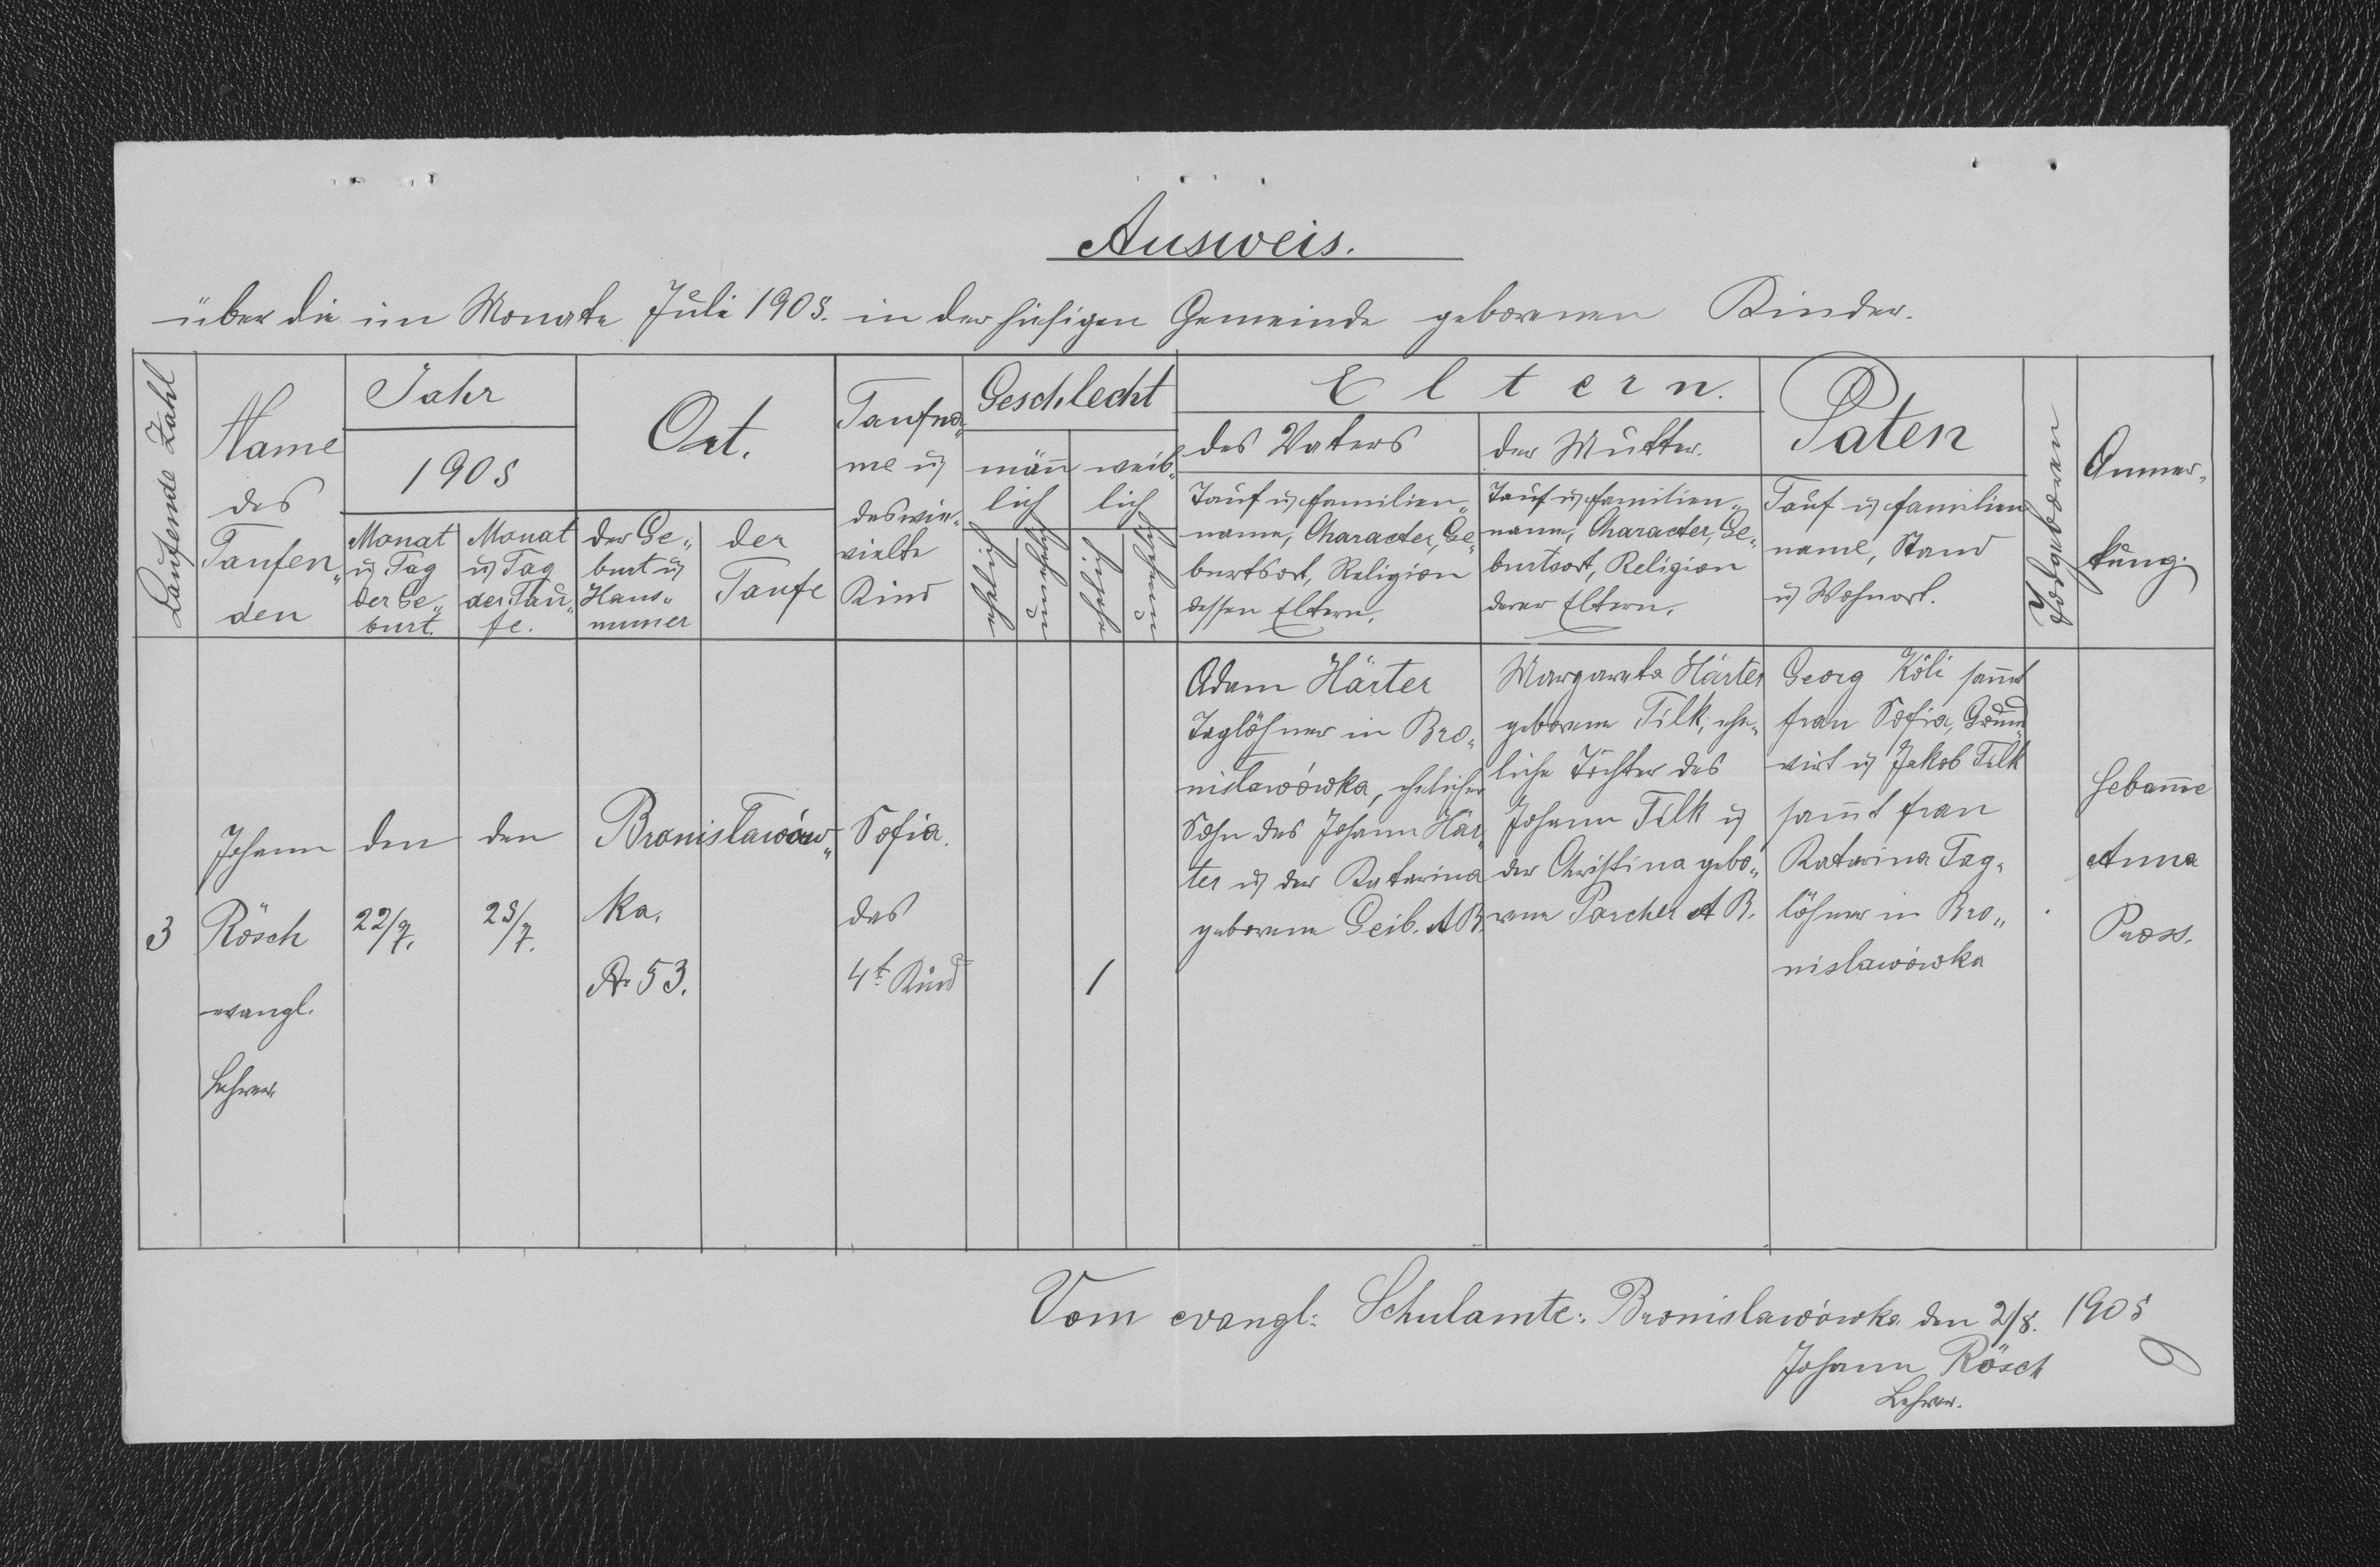 Ausweis.
über die im Monate Juli 1905. in der hiesigen Gemeinde geborenen Kinder.
Laufende Zahl
Name
des
Taufen„
den
Jahr
1905
Monat
u Tag
der Ge„
burt.
Monat
u Tag
der Tau„
fe.
Ort.
der Ge„
burt u
Haus„
numer
der
Taufe
Taufna„
me u
das wie„
vielte
Kind
Geschlecht
männ
lich
weib„
lich
ehelich
unehelich
ehelich
unehelich
Eltern.
des Vaters
Tauf u Familien„
name, Character, Ge„
burtsort, Religion
dessen Eltern.
der Mutter.
Tauf u Familien„
name, Character, Ge„
burtsort, Religion
derer Eltern.
Paten
Tauf u Familien
name, Stand
u Wohnort.
Todgeboren
Anmer„
kung.
3
Johann
Rösch
evangl.
Lehrer.
den
22/7.
den
23/7.
Bronisławów„
ka.
Nr 53.
Sofia.
das
4t Kind
1
Adam Härter
Taglöhner in Bro„
nislawówka, ehelicher
Sohn des Johann Här„
ter u der Katarina
geborene Geib. A B.
Margareta Härter
geborene Filk, ehe„
liche Tochter des
Johann Filk u
der Christina gebo„
rene Porcher A B.
Georg Köli samt
Frau Sofia, Grund„
wirt u Jakob Filk
samt Frau
Katarina Tag„
löhner in Bro„
nislawówka
Hebamme
Anna
Pross.
Vom evangl: Schulamte: Bronislawówka den 2/8. 1905
Johann Rösch
Lehrer.